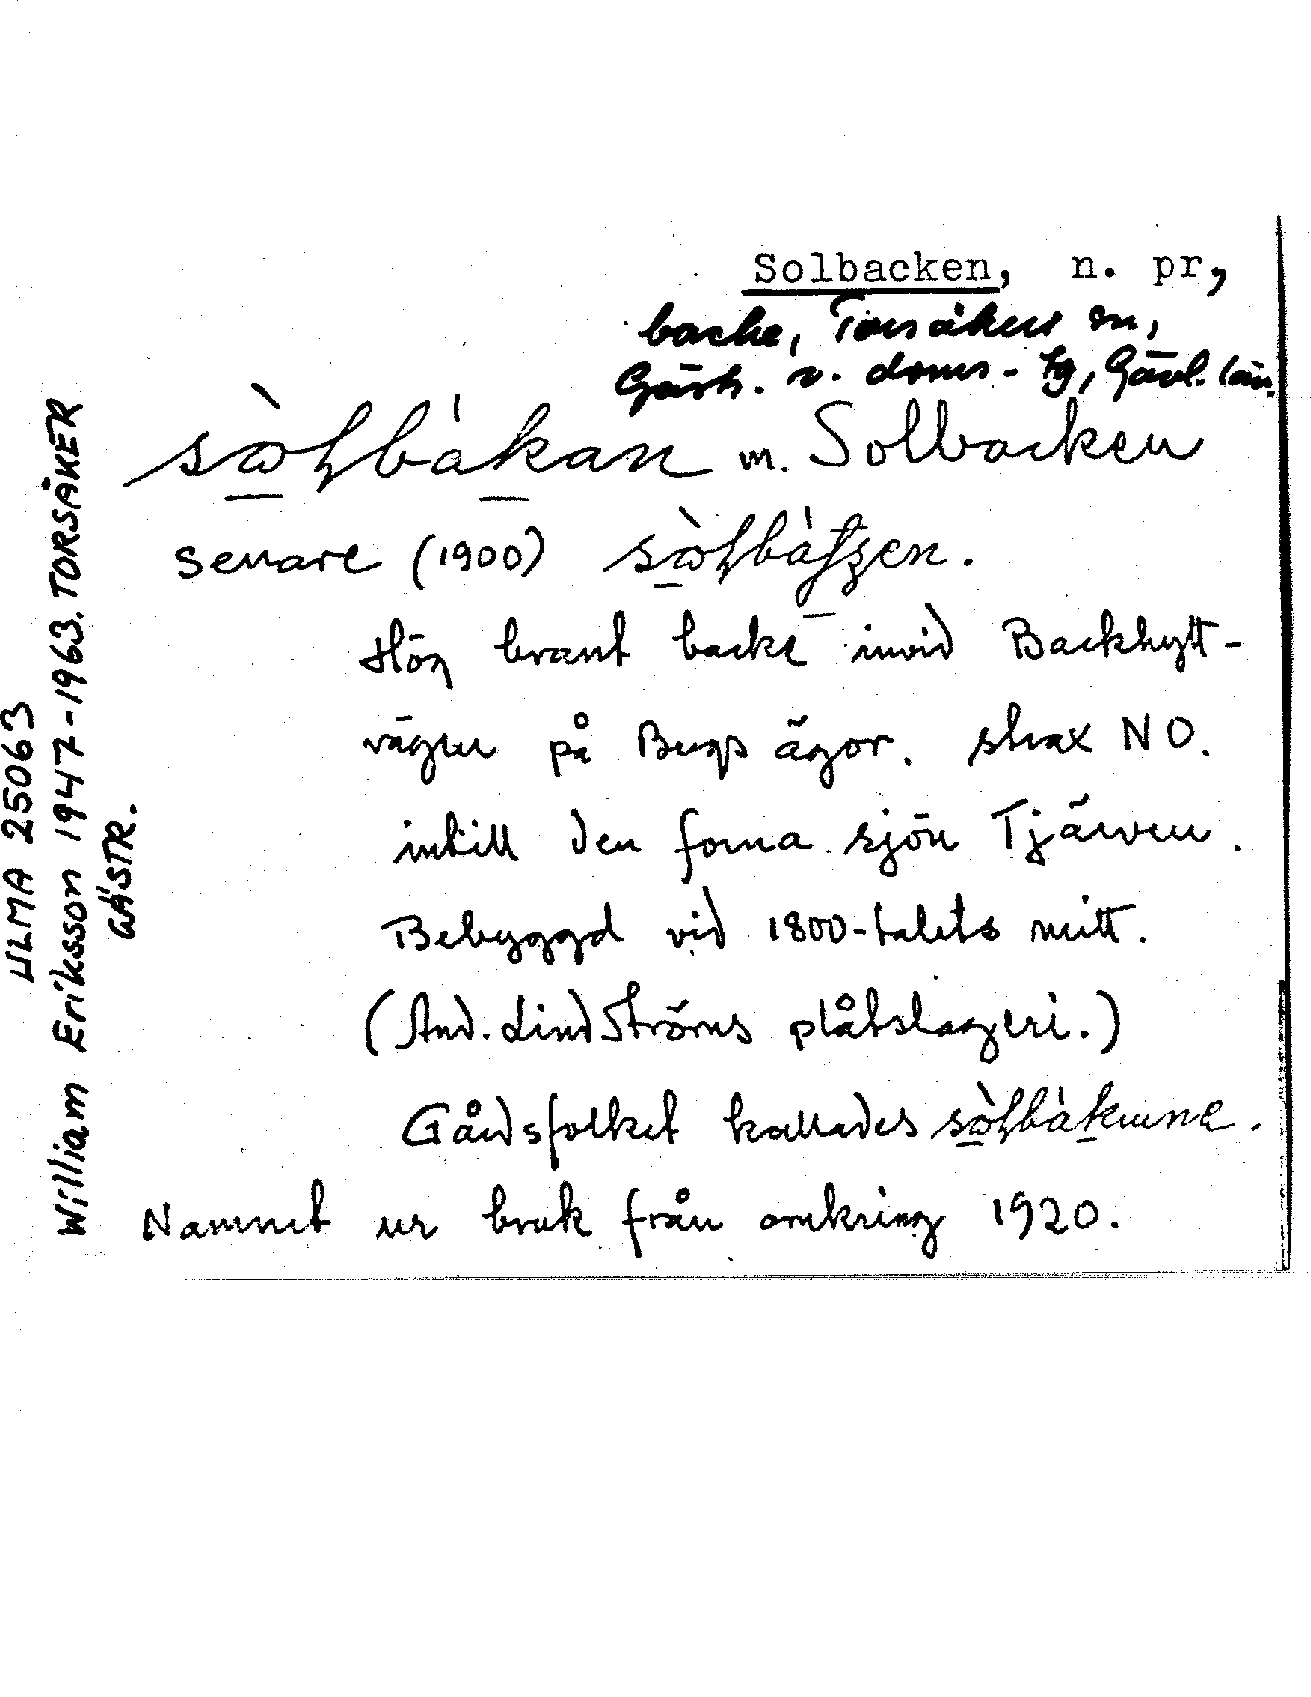 Solbacken, n. pr,
backe, Torsåkers sn,
Gästr. v. doms-tg, Gävl. län.
sὼɫbákan m. Solbacken
senare (1900)
Hög brant backe invid Backhytt-
vägen på Bugs ägor. strax NO.
intill den forna sjön Tjärven.
Bebyggd vid 1800-talets mitt.
(And. Lindströms plåtslageri.)
Gårdsfolket kallades
Namnet ur bruk från omkring 1920.
ULMA 25063
William Eriksson 1947-1963. TORSÅKER
GÄSTR.